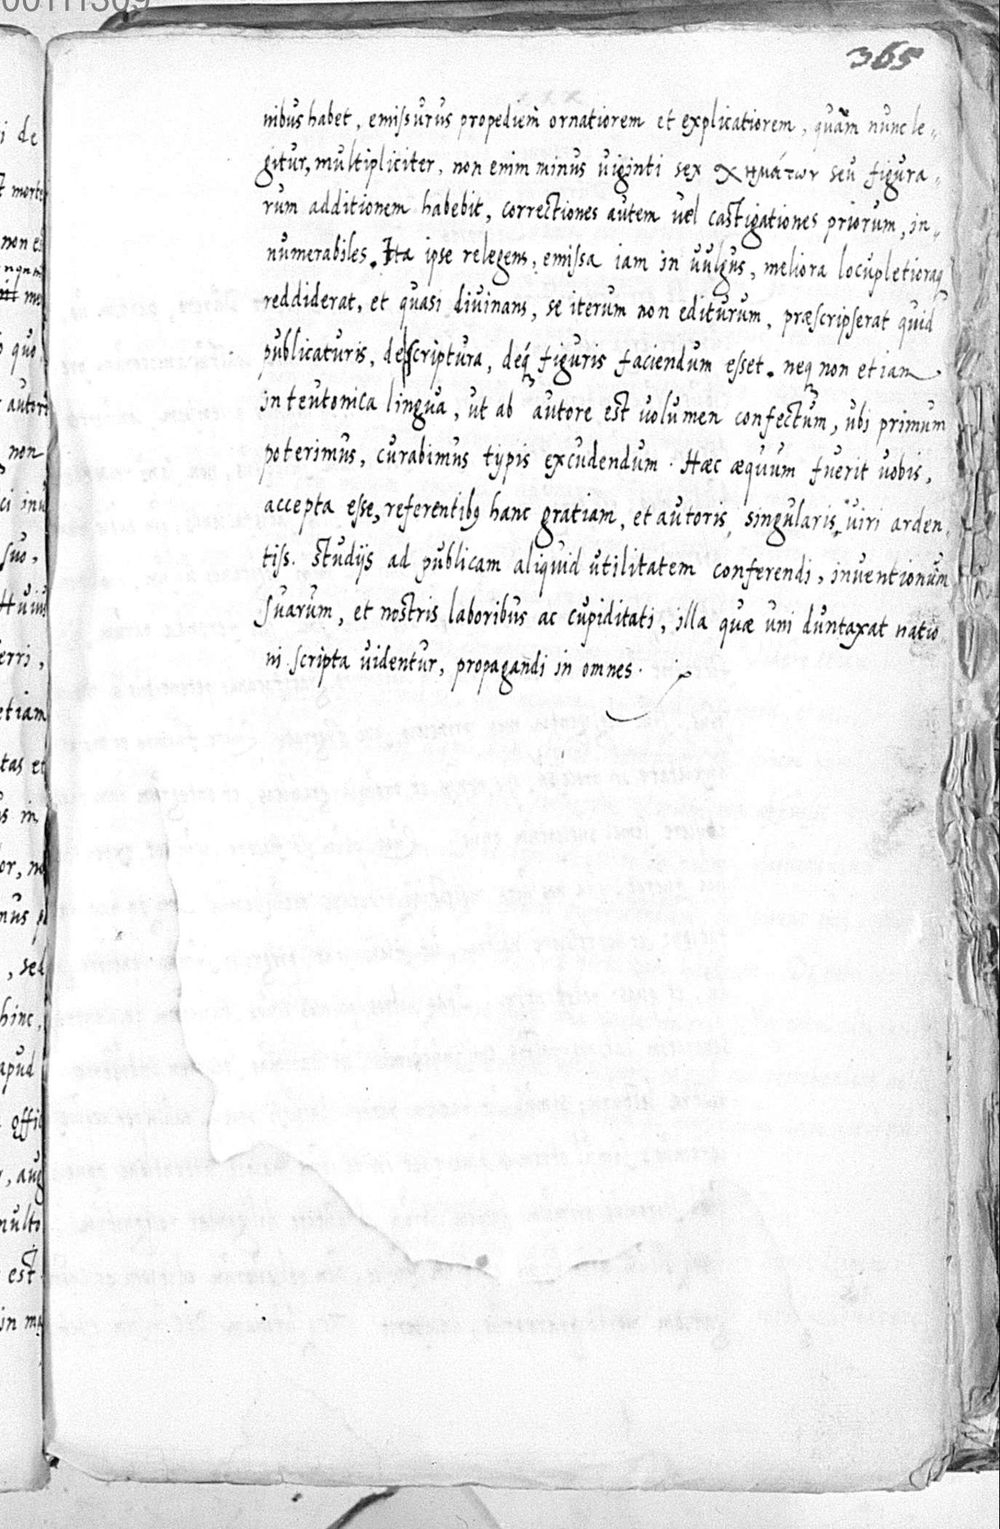 00111309
365
nibus habet, emissurus propediem ornatiorem et explicatiorem, quàm nunc le„
gitur, multipliciter, non enim minus uiginti sex χημάτων seu figura„
rum additionem habebit, correctiones autem uel castigationes priorum, in„
numerabiles. Ita ipse relegens, emissa iam in uulgus, meliora locupletioraq
reddiderat, et quasi diuinans, se iterum non editurum, præscripserat quid
publicaturis, de scriptura, deq́ figuris faciendum esset. neq non etiam
in teutonica lingua, ut ab autore est uolumen confectum, ubi primum
poterimus, curabimus typis excudendum. Hæc æquum fuerit uobis,
accepta esse, referentibꝰ hanc gratiam, et autoris, singularis uiri arden„
tiss. studijs ad publicam aliquid utilitatem conferendi, inuentionum
suarum, et nostris laboribus ac cupiditati, illa quæ uni duntaxat natio
ni scripta uidentur, propagandi in omnes.
i de
mort
non e
me
quo
autori
non
ci inu
suo,
Huius
erri,
etiam
tas et
s m
or, n
nus p
, sed
hinc,
apud
offic
, aug
multo
est
in m